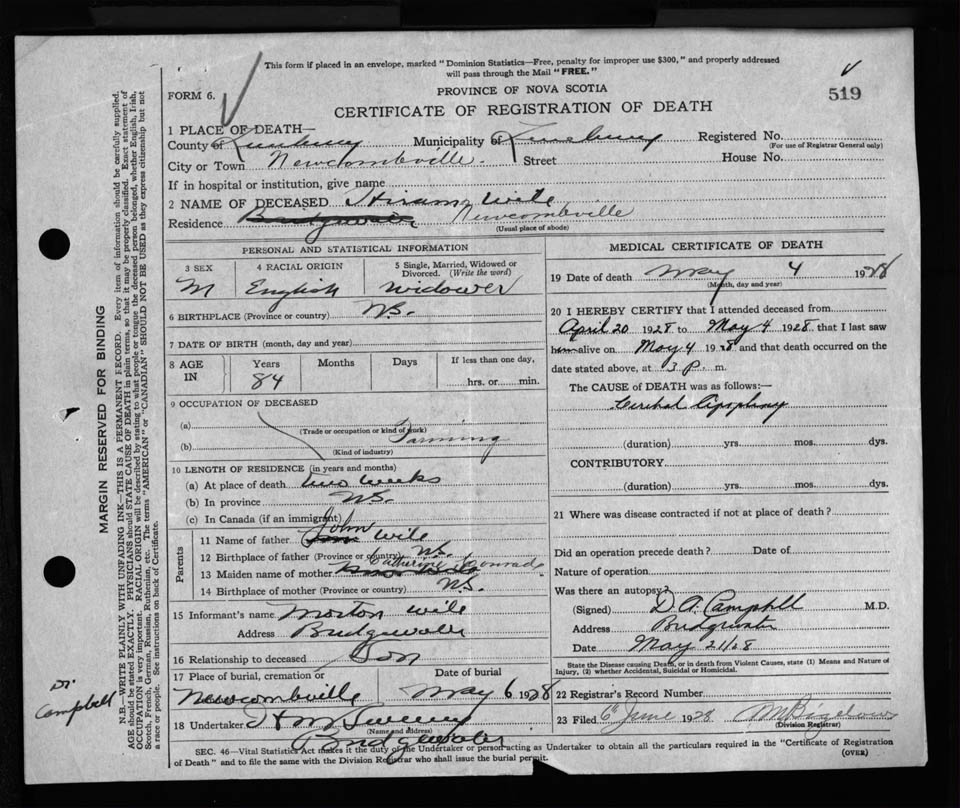 This form if placed in an envelope, marked “Dominion Statistics—Free, penalty for improper use $300,” and properly addressed
will pass through the Mail “FREE.”
FORM 6.
PROVINCE OF NOVA SCOTIA
519
CERTIFICATE OF REGISTRATION OF DEATH
1 PLACE OF DEATH—
County of Lunenburg Municipality of Lunenburg Registered No.
(For use of Registrar General only)
City or Town Newcombville Street House No.
If in hospital or institution, give name
2 NAME OF DECEASED Hiram Wile
Residence Bridgewater Newcombville
(Usual place of abode)
PERSONAL AND STATISTICAL INFORMATION
3 SEX
M
4 RACIAL ORIGIN
English
5 Single, Married, Widowed or
Divorced. (Write the word)
Widower
6 BIRTHPLACE (Province or country) N.S.
7 DATE OF BIRTH (month, day and year)
8 AGE
IN
Years
84
Months
Days
If less than one day,
hrs. or min.
9 OCCUPATION OF DECEASED
(a)
(Trade or occupation or kind of work)
(b) Farming
(Kind of industry)
10 LENGTH OF RESIDENCE (in years and months)
(a) At place of death two weeks
(b) In province N.S.
(c) In Canada (if an immigrant)
Parents
11 Name of father John Wile
12 Birthplace of father (Province or country) N.S.
13 Maiden name of mother Catherine Conrad
14 Birthplace of mother (Province or country) N.S.
15 Informant's name Morton Wile
Address Bridgewater
16 Relationship to deceased Son
17 Place of burial, cremation or Date of burial
Newcombville May 6 1928
18 Undertaker
(Name and address)
Bridgewater
MEDICAL CERTIFICATE OF DEATH
19 Date of death May 4 1928
(Month, day and year)
20 I HEREBY CERTIFY that I attended deceased from
April 20 1928 to May 4 1928, that I last saw
him alive on May 4 1928 and that death occurred on the
date stated above, at 3 P. m.
The CAUSE of DEATH was as follows:—
(duration) yrs. mos. dys.
CONTRIBUTORY
(duration) yrs. mos. dys.
21 Where was disease contracted if not at place of death?
Did an operation precede death? Date of
Nature of operation
Was there an autopsy?
(Signed) D A Campbell M.D.
Address Bridgewater
Date May 21/28
State the Disease causing Death, or in death from Violent Causes, state (1) Means and Nature of
Injury, (2) whether Accidental, Suicidal or Homicidal.
22 Registrar's Record Number
23 Filed 6th June 1928
(Division Registrar)
SEC. 46—Vital Statistics Act makes it the duty of the Undertaker or person acting as Undertaker to obtain all the particulars required in the “Certificate of Registration
of Death” and to file the same with the Division Registrar who shall issue the burial permit.
(OVER)
MARGIN RESERVED FOR BINDING
N.B.—WRITE PLAINLY WITH UNFADING INK—THIS IS A PERMANENT RECORD. Every item of information should be carefully supplied.
AGE should be stated EXACTLY. PHYSICIANS should STATE CAUSE OF DEATH in plain terms, so that it may be properly classified. Exact statement of
OCCUPATION is very important. RACIAL ORIGIN will be described by stating to what people or tongue the deceased person belonged, whether English, Irish,
Scotch, French, German, Russian, Ruthenian, etc. The terms “AMERICAN” or “CANADIAN” SHOULD NOT BE USED as they express citizenship but not
a race or people. See instructions on back of Certificate.
Dr
Campbell